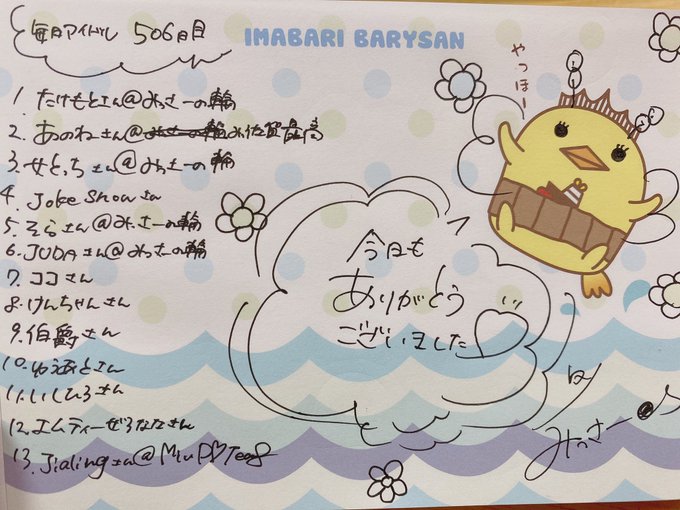 毎日アイドル 506日目
IMABARI BARYSAN
やっほー
1. たけもとさん@みっさーの輪
2. あのねさん@み佐賀最高
3. せとっちさん@みっさーの輪
4. Joke Showさん
5. そらさん@みっさーの輪
6. JUDAさん@みっさーの輪
7. ココさん
8. けんちゃんさん
9. 伯爵さん
10. ゆうあとさん
11. いしひろさん
12. エムティーぜろななさん
13. Jialingさん@Miu
今日も
ありがとう
ございました
みっさー